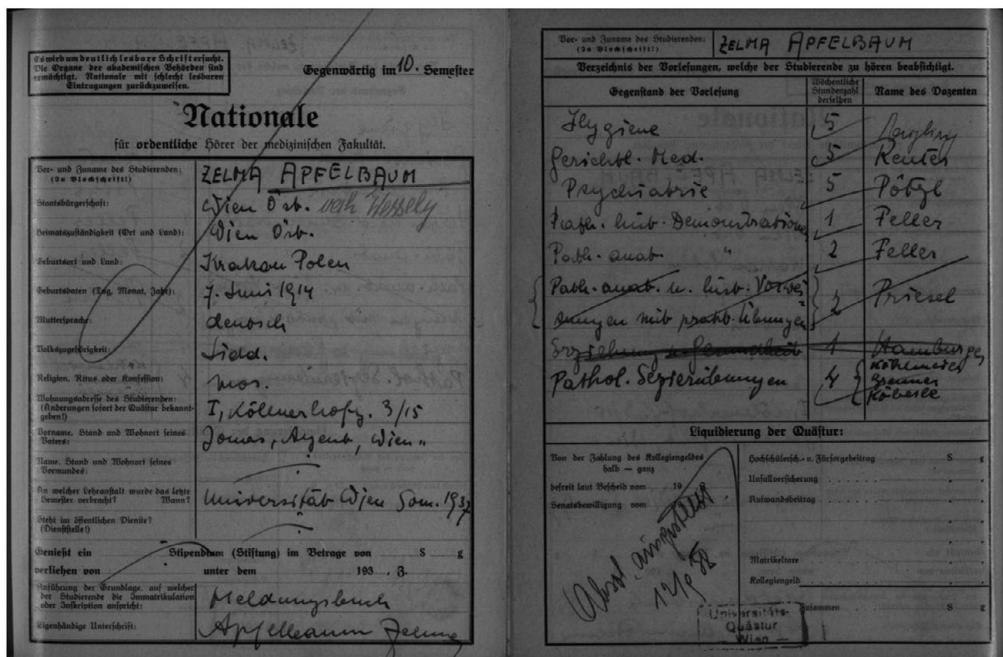 Es wird um deutlich lesbare Schrift ersucht.
Die Organe der akademischen Behörden sind
ermächtigt, Nationale mit schlecht lesbaren
Eintragungen zurückzuweisen.
Gegenwärtig im 10. Semester
Nationale
für ordentliche Hörer der medizinischen Fakultät.
Vor- und Zuname des Studierenden: ZELMA APFELBAUM
(In Blockschrift!)
Staatsbürgerschaft: Wien Öst. Wessely
Heimatszuständigkeit (Ort und Land): Wien Öst.
Geburtsort und Land: Krakau Polen
Geburtsdaten (Tag, Monat, Jahr): 7. Juni 1914
Muttersprache: deutsch
Volkszugehörigkeit: Jüd.
Religion, Ritus oder Konfession: mos.
Wohnungsadresse des Studierenden: I, Köllnerhofg. 3/15
(Änderungen sofort der Quästur bekannt-
geben!)
Vorname, Stand und Wohnort seines Jonas, Agent, Wien
Vaters:
Name, Stand und Wohnort seines
Vormundes:
An welcher Lehranstalt wurde das letzte Universität Wien Som. 1937
Semester verbracht? Wann?
Steht im öffentlichen Dienste?
(Dienststelle!)
Genießt ein Stipendium (Stiftung) im Betrage von S g
verliehen von unter dem 193 Z.
Anführung der Grundlage, auf welcher Meldungsbuch
der Studierende die Immatrikulation
oder Inskription anspricht:
Eigenhändige Unterschrift: Apfelbaum Zelma
Vor- und Zuname des Studierenden: ZELMA APFELBAUM
(In Blockschrift!)
Verzeichnis der Vorlesungen, welche der Studierende zu hören beabsichtigt.
Gegenstand der Vorlesung Wöchentliche Stundenzahl derselben Name des Dozenten
Hygiene 5
Gerichtl. Med. 5 Reuter
Psychiatrie 5 Pötzl
Path. hist. Demonstrationen 1 Feller
Path. anat. " 2 Feller
Path. anat. u. hist.
mit prakt. Übungen 2 Priesel
1 Hamburger
Pathol. Sezierübungen 4
Liquidierung der Quästur:
Von der Zahlung des Kollegiengeldes
halb — ganz
befreit laut Bescheid vom 19
Senatsbewilligung vom
Hochschülersch.- u. Fürsorgebeitrag S g
Unfallversicherung
Aufwandsbeitrag
Matrikeltaxe
Kollegiengeld
Zusammen S g
Absol. ausgestellt
Universitäts-
Quästur
— Wien —